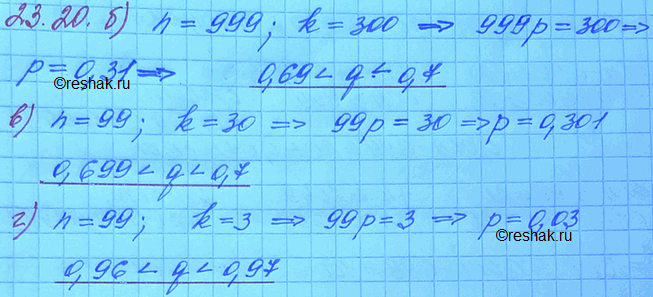 23.20. б) n = 999; k = 300 ⟹ 999p = 300 ⟹
p = 0,31 ⟹ 0,69 < q < 0,7
©reshak.ru
в) n = 99; k = 30 ⟹ 99p = 30 ⟹ p = 0,301
0,699 < q < 0,7
г) n = 99; k = 3 ⟹ 99p = 3 ⟹ p = 0,03
©reshak.ru
0,96 < q < 0,97
©reshak.ru